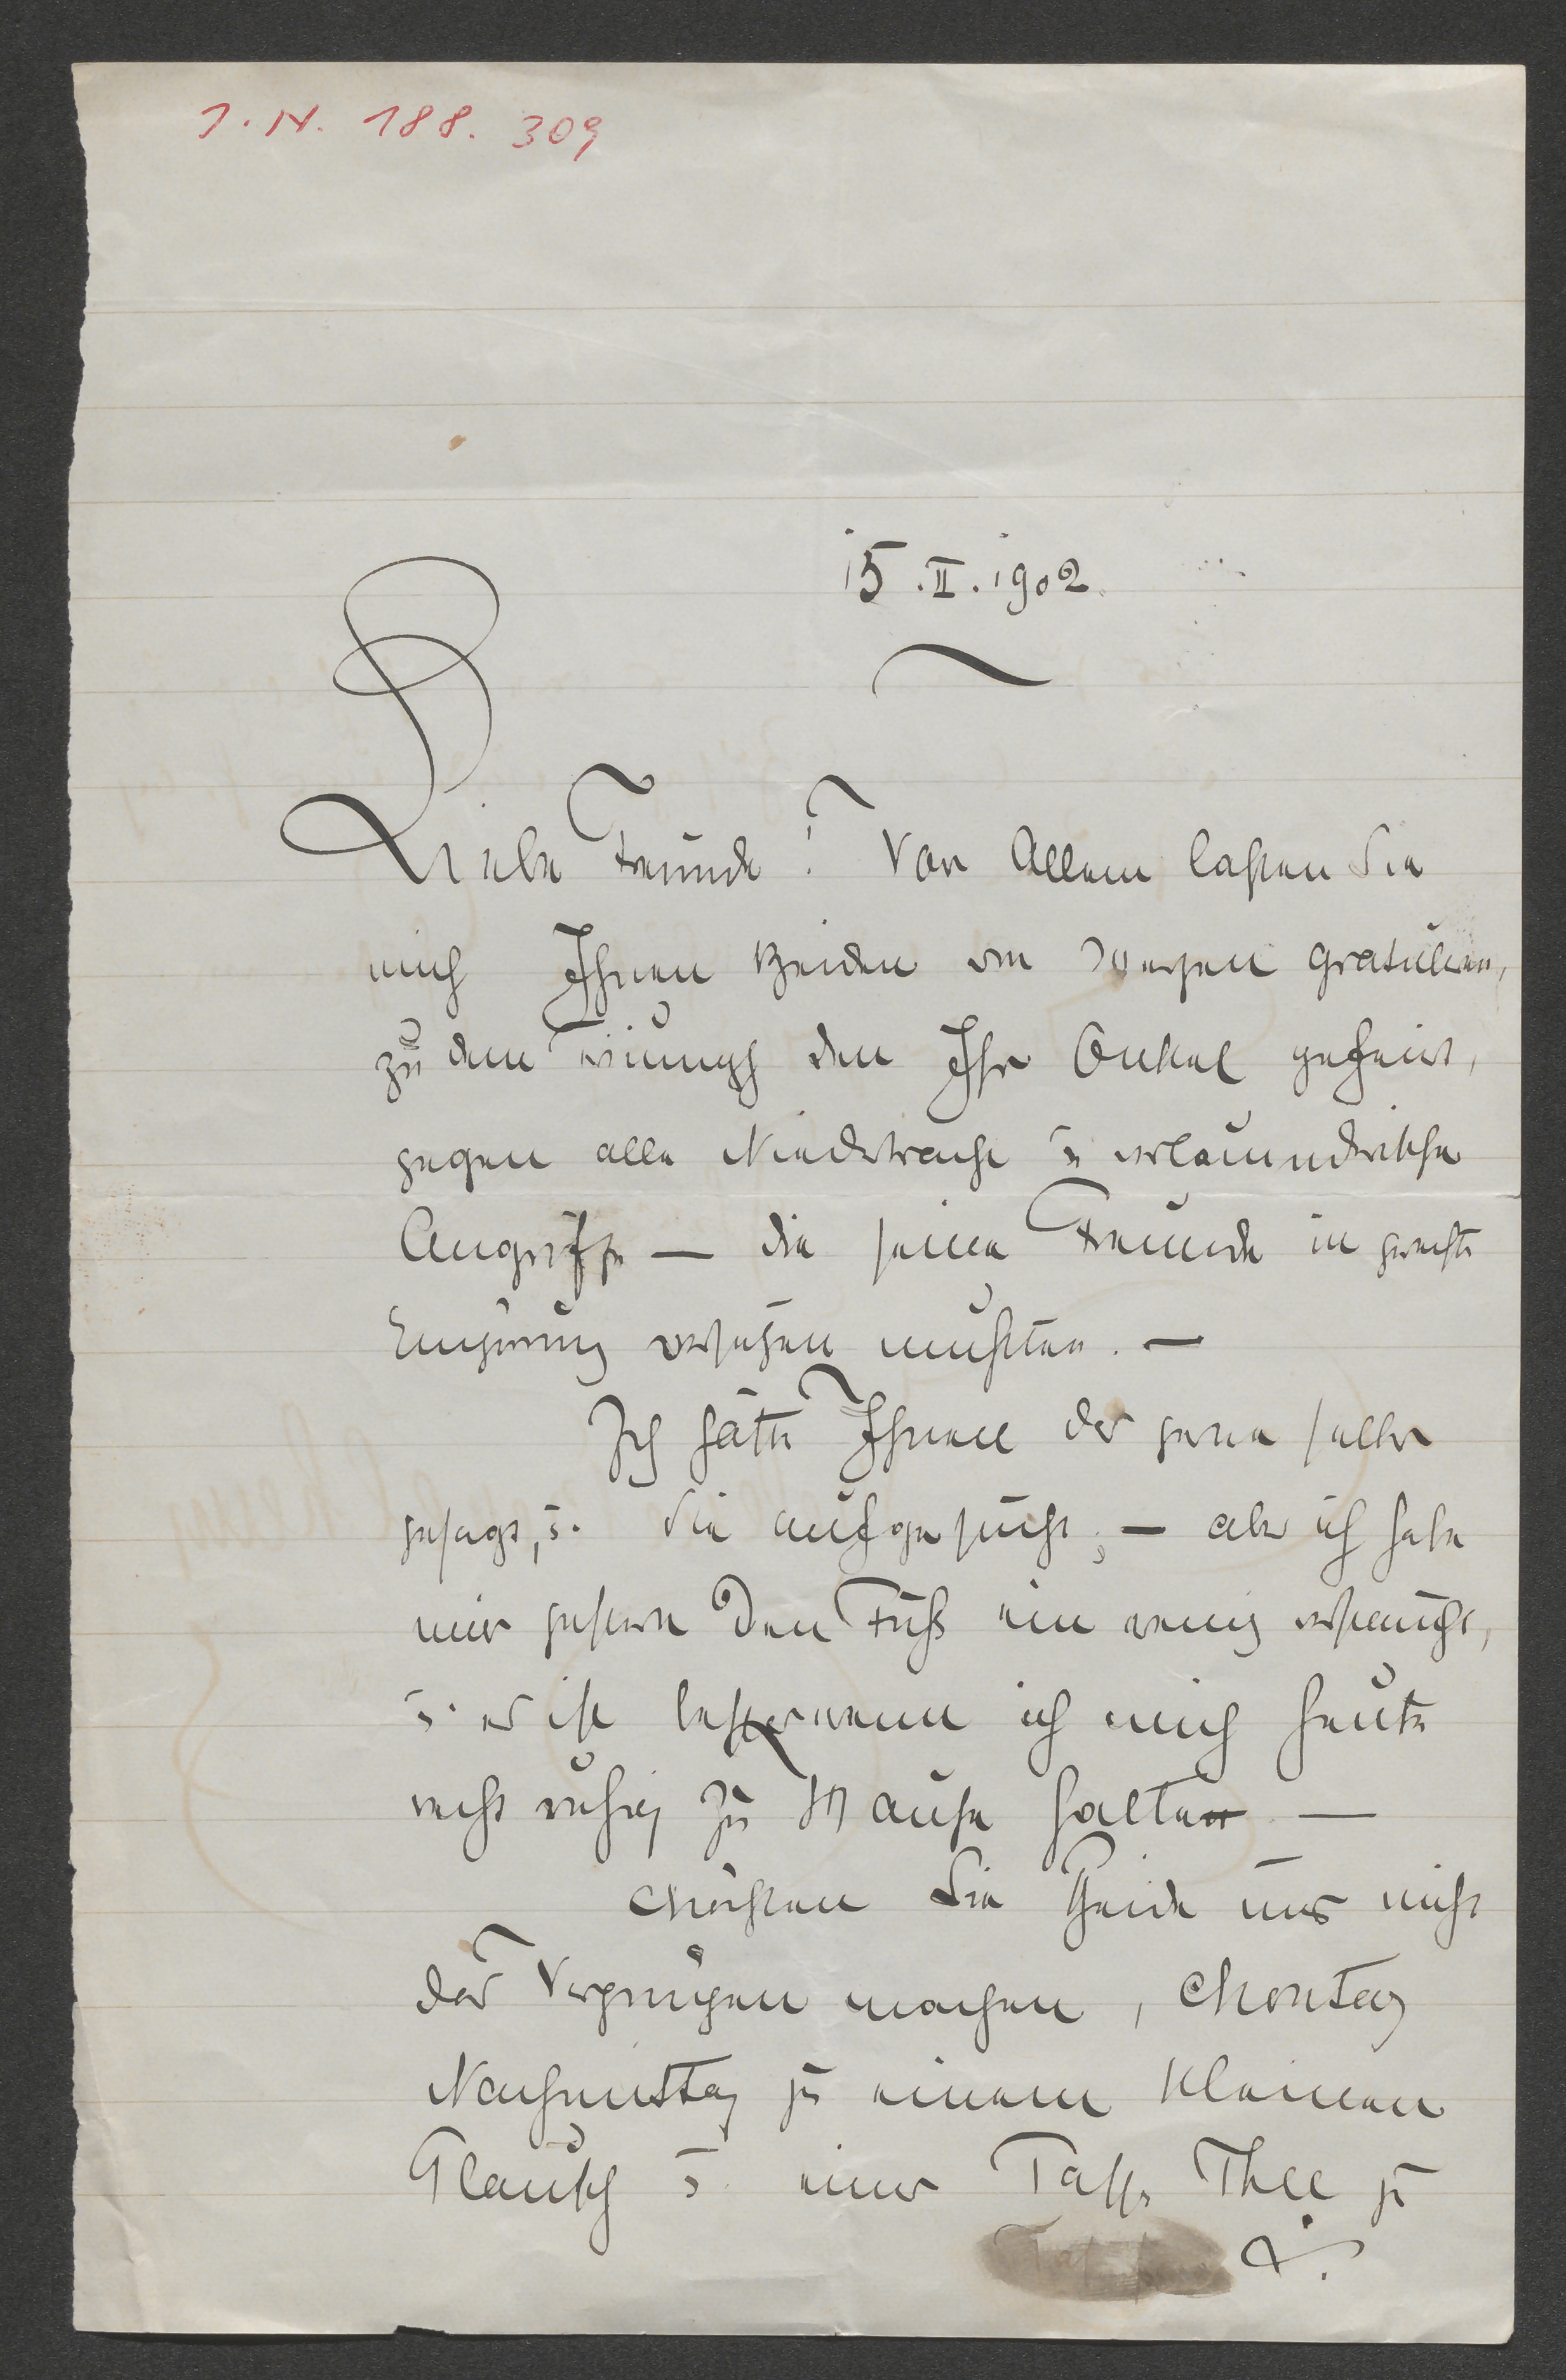 J. N. 188. 309
15. II. 1902.
Liebe Freunde! Vor Allem laßen Sie
mich Ihnen Beiden von Herzen gratuliren,
zu dem Triumph den Ihr Onkel gefeiert,
gegen alle Niedertracht u verläumderische
Angriffe — die seine Freunde in gerechte
Empörung versetzen mußten. —
Ich hätte Ihnen das gerne selber
gesagt, u. Sie aufgesucht; — aber ich habe
mir gestern den Fuß ein wenig verstaucht,
u. es ist besser wenn ich mich heute
recht ruhig zu Hause halte —
Möchten Sie Beide uns nicht
das Vergnügen machen, Montag
Nachmittag zu einem kleinen
Plausch u. einer Tasse Thee zu